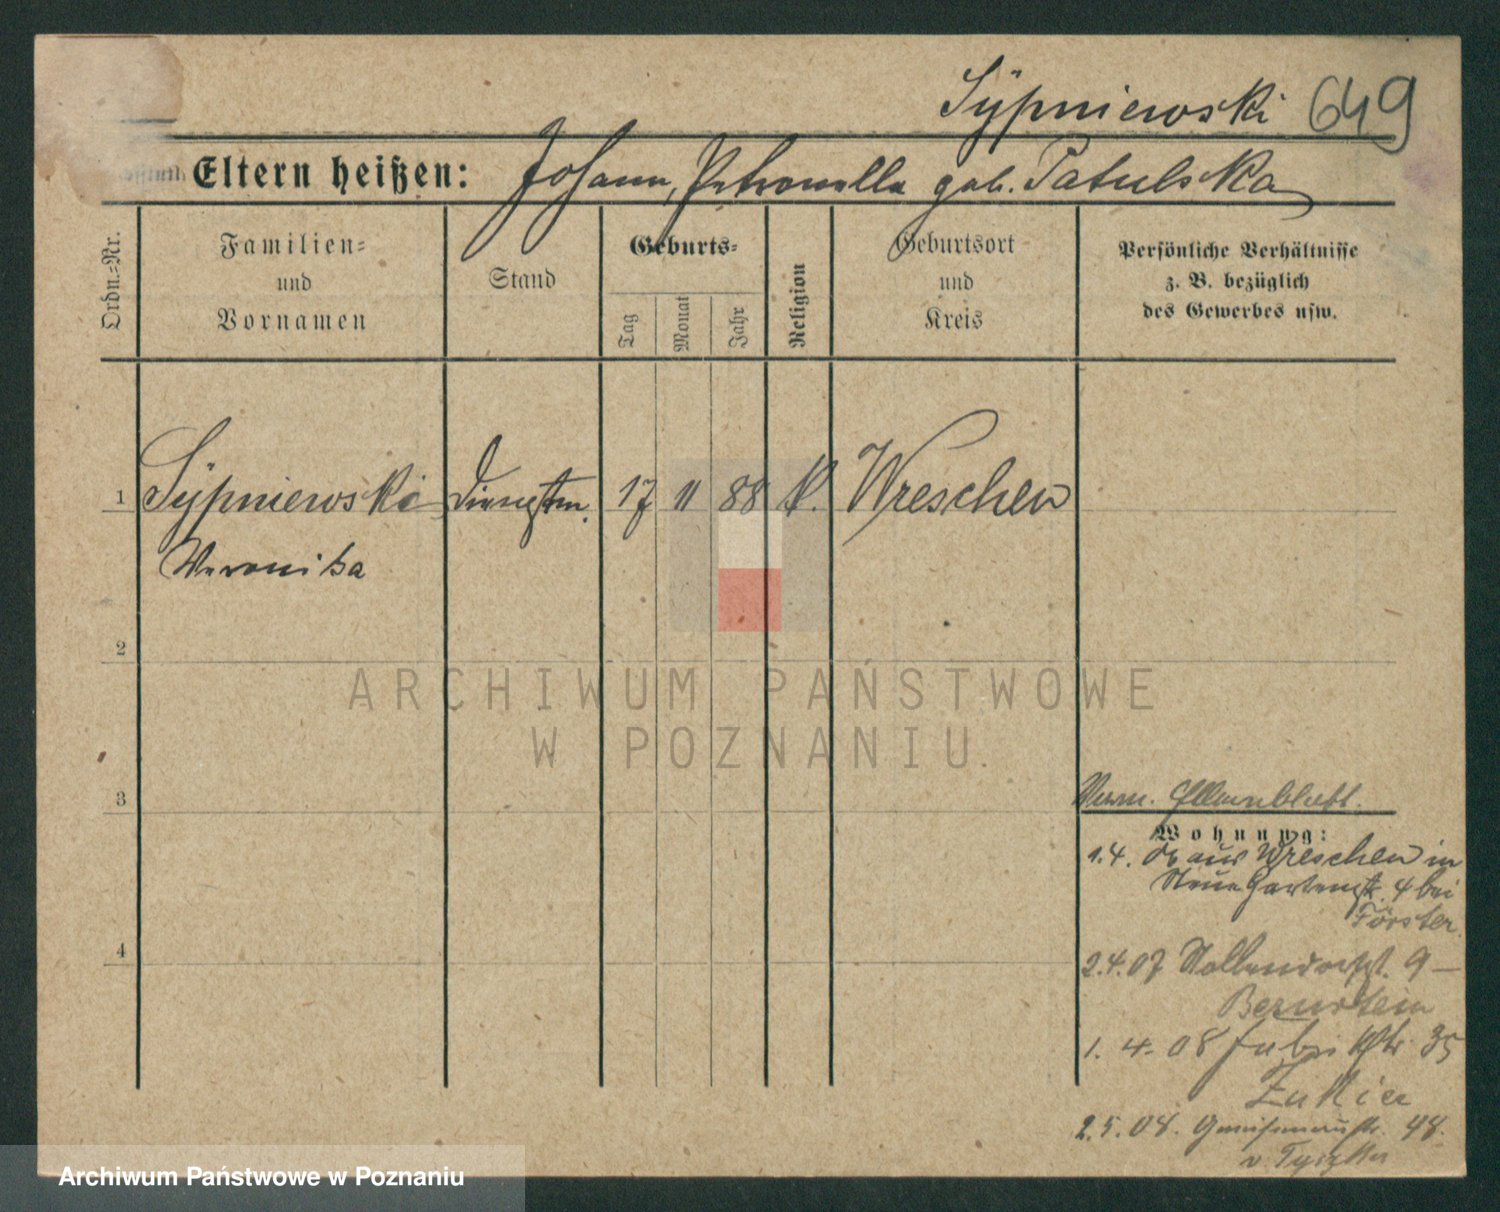 Sÿpniewski 649
Eltern heißen: Johann, Petronella geb. Patulska
Ordn.=Nr.
Familien=
und
Vornamen
Stand
Geburts=
Tag
Monat
Jahr
Religion
Geburtsort
und
Kreis
Persönliche Verhältnisse
z. B. bezüglich
des Gewerbes usw.
1 Sÿpniewski Dienstm. 17 11 88 k. Wreschen
Veronika
2
ARCHIWUM PAŃSTWOWE
W POZNANIU
3
Wohnung:
1.4. 06 aus Wreschen in
Neue Gartenstr. 4 bei
Förster.
4
2.4.07 Nollendorfstr. 9 –
Bernstein
1. 4. 08 35
2.5.08. Gneisenaustr. 48.
Archiwum Państwowe w Poznaniu